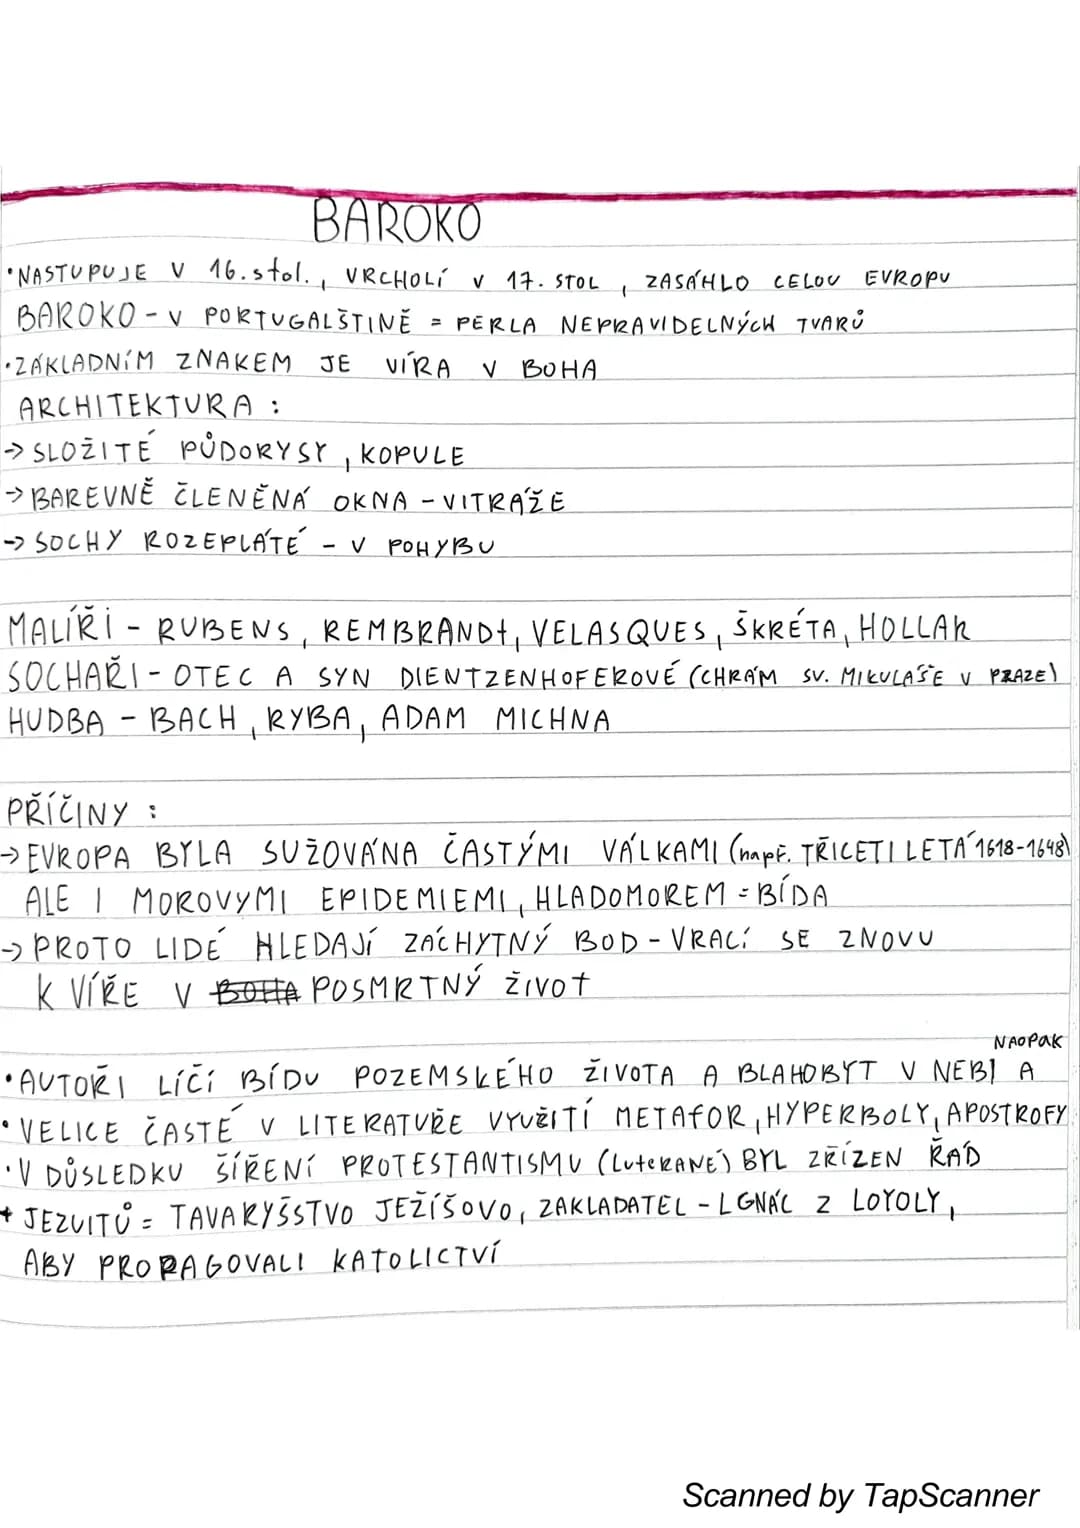 BAROKO
•NASTUPUJE V 16. stol., VRCHOLÍ V 17. STOL, ZASÁHLO CELOU EVROPU
BAROKO - V PORTUGALŠTINĚ = PERLA NEPRAVIDELNÝCH TVARŮ
•ZÁKLADNÍM ZNAKEM JE VÍRA V BOHA
ARCHITEKTURA :
→ SLOŽITÉ PŮDORYSY, KOPULE
→ BAREVNĚ ČLENĚNÁ OKNA - VITRÁŽE
→ SOCHY ROZEPLÁTÉ - V POHYBU
MALÍŘI - RUBENS, REMBRANDt, VELASQUES, ŠKRÉTA, HOLLAR
SOCHAŘI - OTEC A SYN DIENTZENHOFEROVÉ (CHRÁM SV. MIKULÁŠE V PRAZE)
HUDBA - BACH, RYBA, ADAM MICHNA
PŘÍČINY :
→ EVROPA BYLA SUŽOVÁNA ČASTÝMI VÁLKAMI (např. TŘICETI LETÁ 1618-1648)
ALE I MOROVYMI EPIDEMIEMI, HLADOMOREM = BÍDA
→ PROTO LIDÉ HLEDAJÍ ZÁCHYTNÝ BOD - VRACÍ SE ZNOVU
K VÍŘE V BOHA POSMRTNÝ ŽIVOT
NAOPAK
•AUTOŘI LÍČÍ BÍDU POZEMSKÉHO ŽIVOTA A BLAHOBYT V NEBI A
•VELICE ČASTÉ V LITERATUŘE VYUŽITÍ METAFOR, HYPERBOLY, APOSTROFY
•V DŮSLEDKU ŠÍŘENÍ PROTESTANTISMU (LUTERANÉ) BYL ZŘÍZEN ŘÁD
+ JEZUITŮ = TAVARYŠSTVO JEŽÍŠOVO, ZAKLADATEL - IGNÁC Z LOYOLY,
ABY PROPAGOVALI KATOLICTVÍ
Scanned by TapScanner